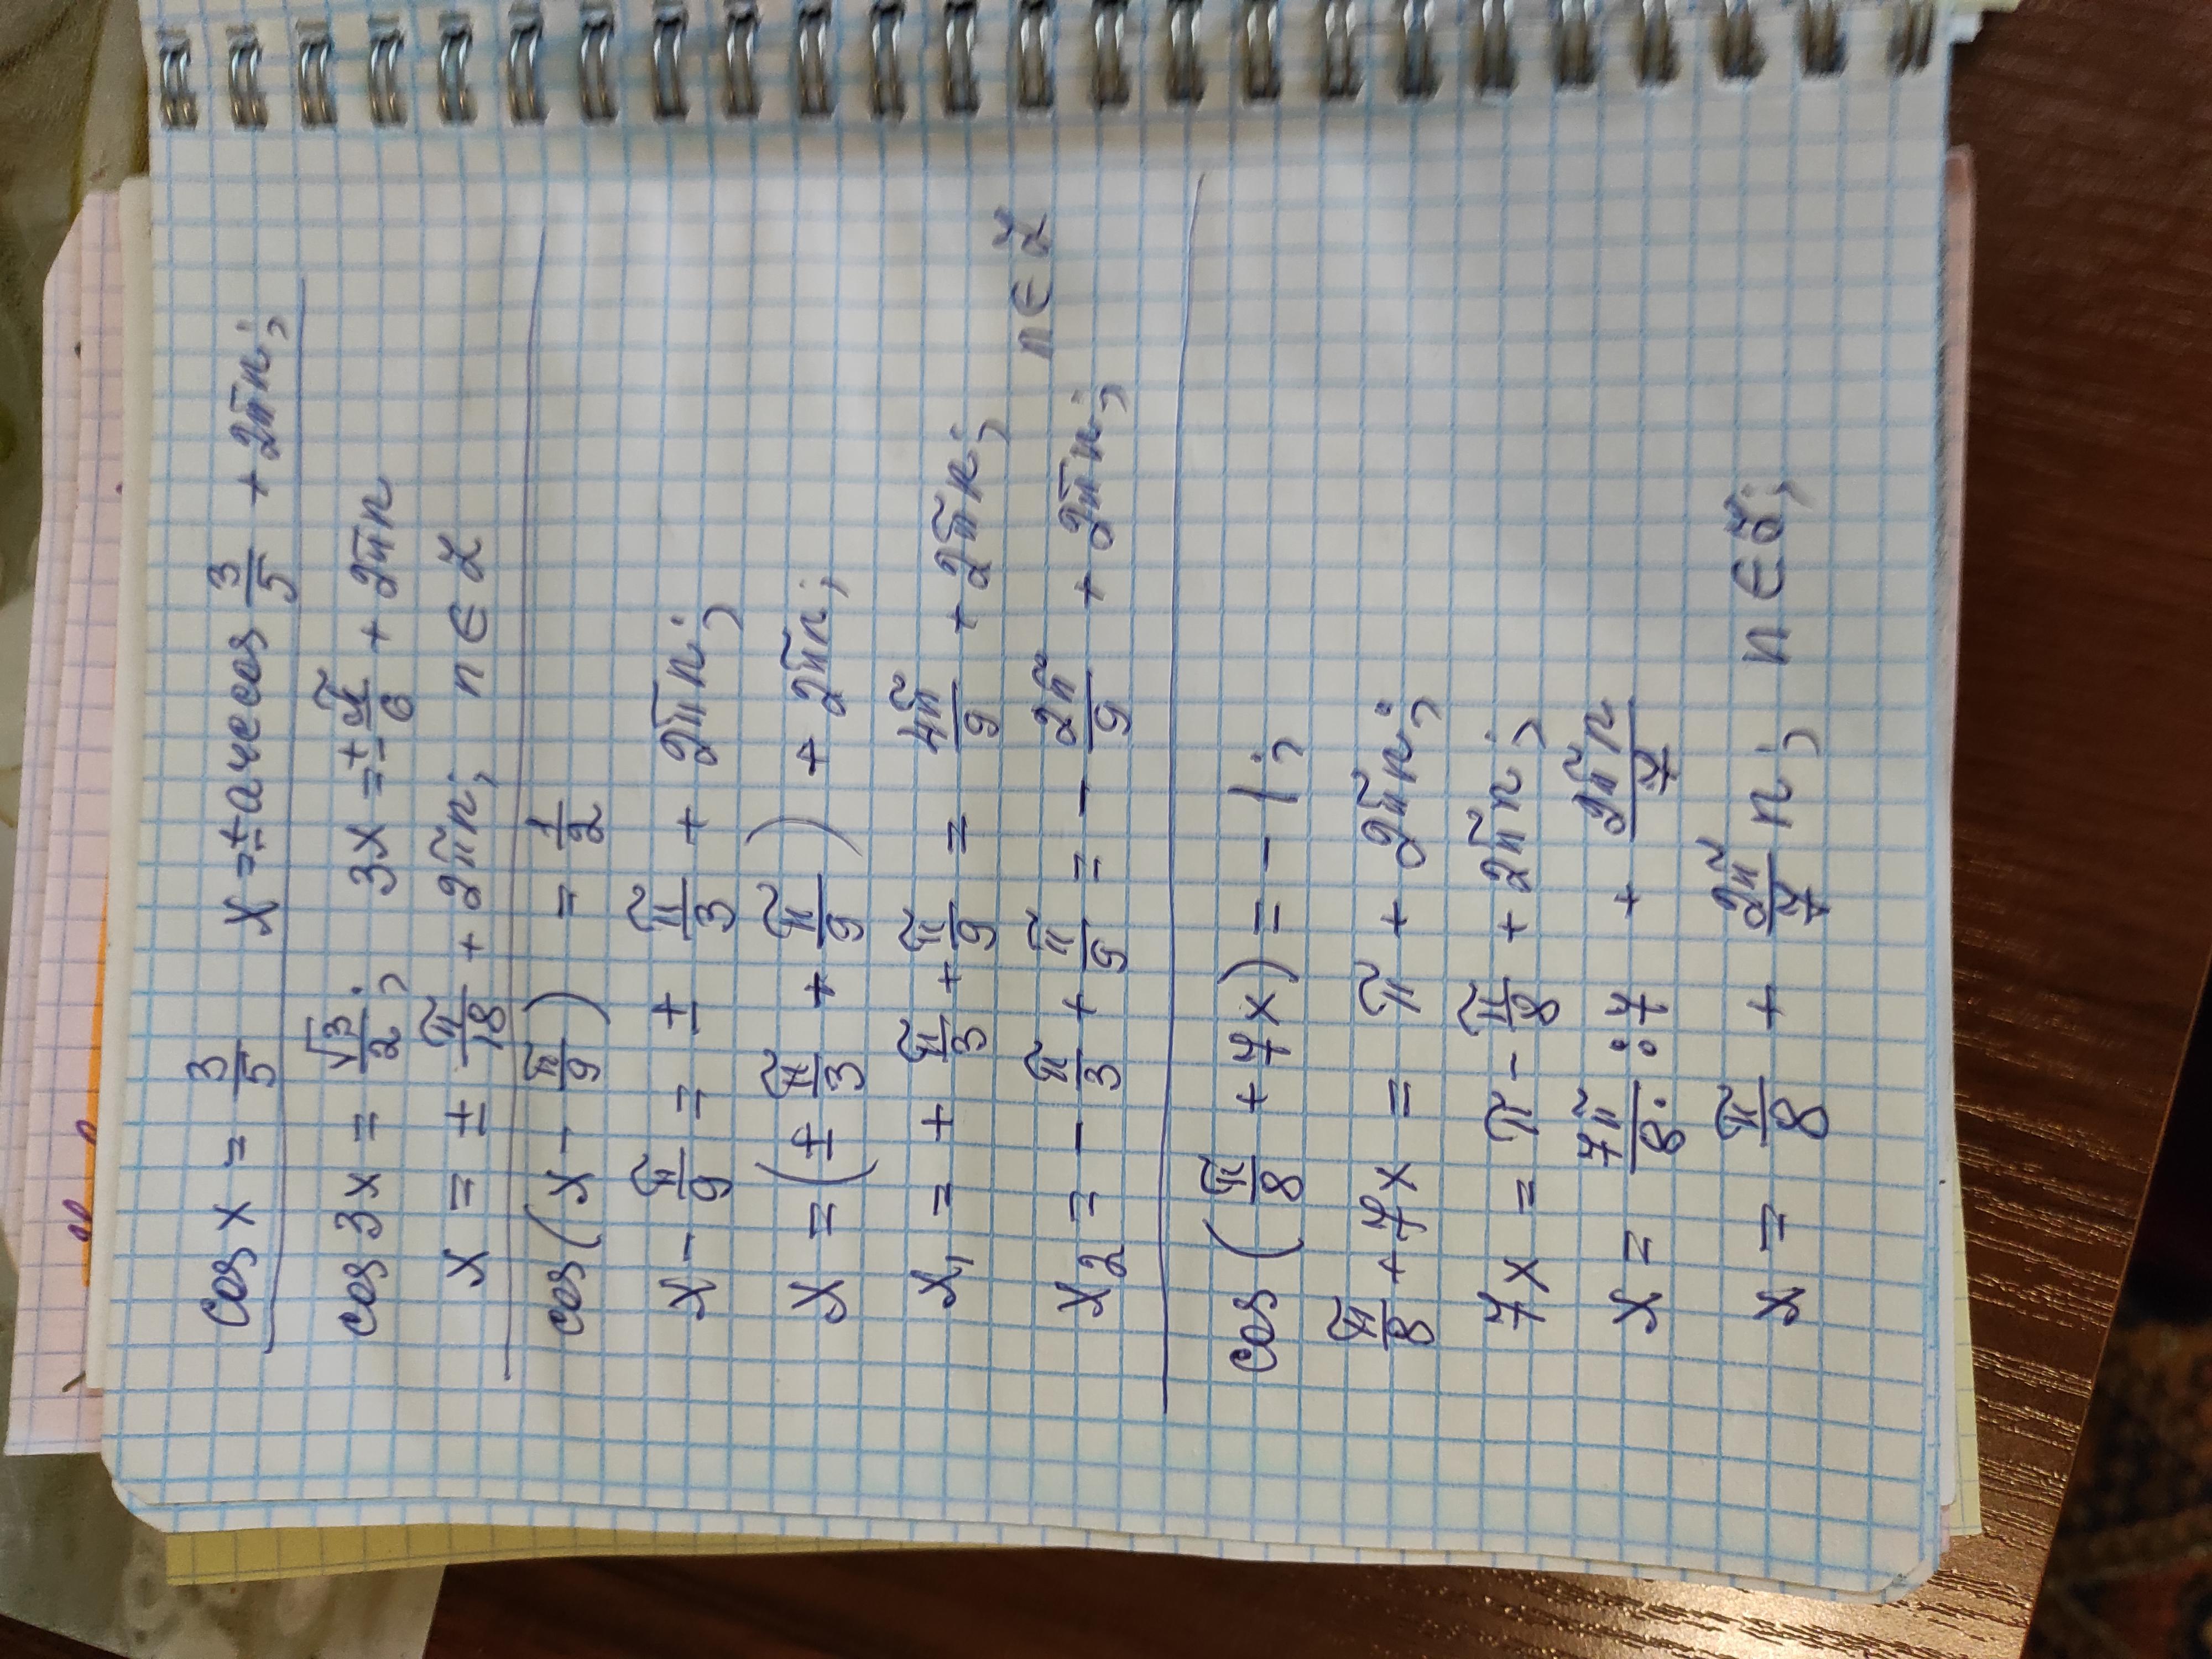 cos x = 3/5 x = ± arccos 3/5 + 2πn;
cos 3x = √3/2; 3x = ± π/6 + 2πn
x = ± π/18 + 2πn; n ∈ Z
cos(x - π/9) = 1/2
x - π/9 = ± π/3 + 2πn;
x = (± π/3 + π/9) + 2πn;
x₁ = + π/3 + π/9 = 4π/9 + 2πn;
n ∈ Z
x₂ = - π/3 + π/9 = - 2π/9 + 2πn;
cos(π/8 + 7x) = - 1;
π/8 + 7x = π + 2πn;
7x = π - π/8 + 2πn;
x = 7π/8 : 7 + 2πn/7
x = π/8 + 2π/7 n; n ∈ Z;